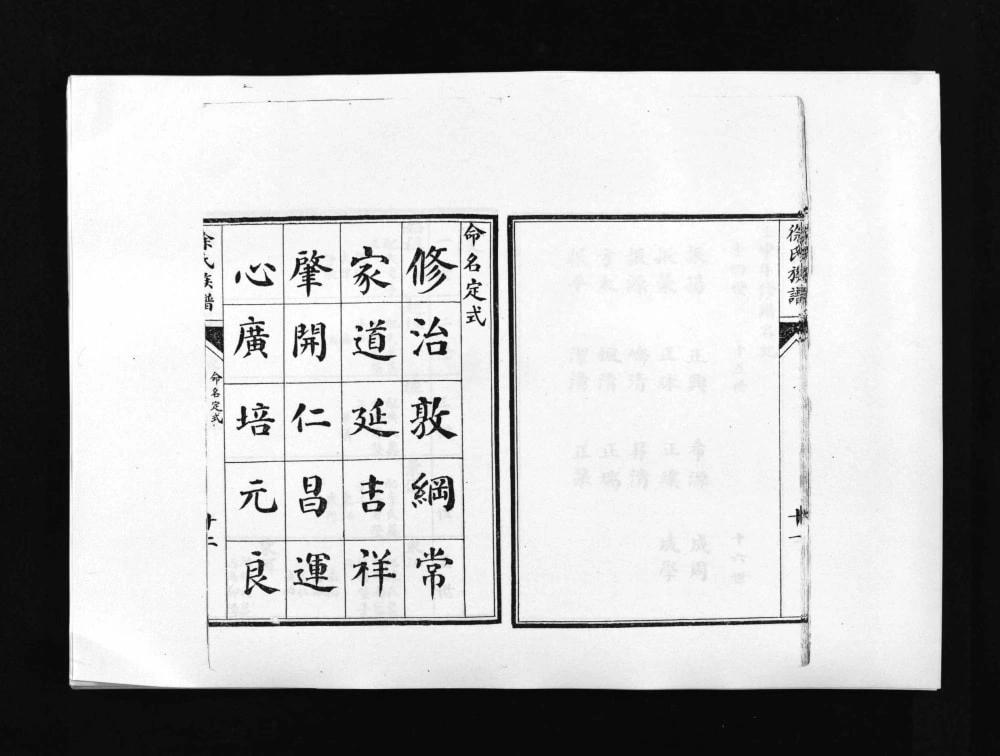 徐氏族譜
十一
命名定式
修治敦綱常
家道延吉祥
肇開仁昌運
心廣培元良
徐氏族譜
命名定式
十二